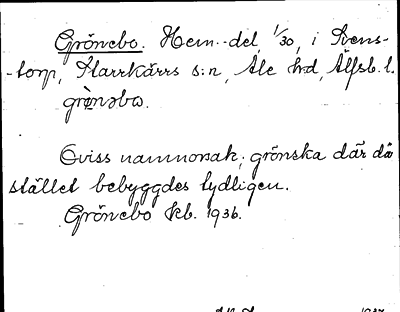 Grönebo. Hem.-del, 1/30, i Svens-
-torp, Starrkärrs s:n, Ale hd, Älfsb. l.
grö̀nəbo.
Oviss namnorsak; grönska där då
stället bebyggdes tydligen.
Grönebo kb. 1936.